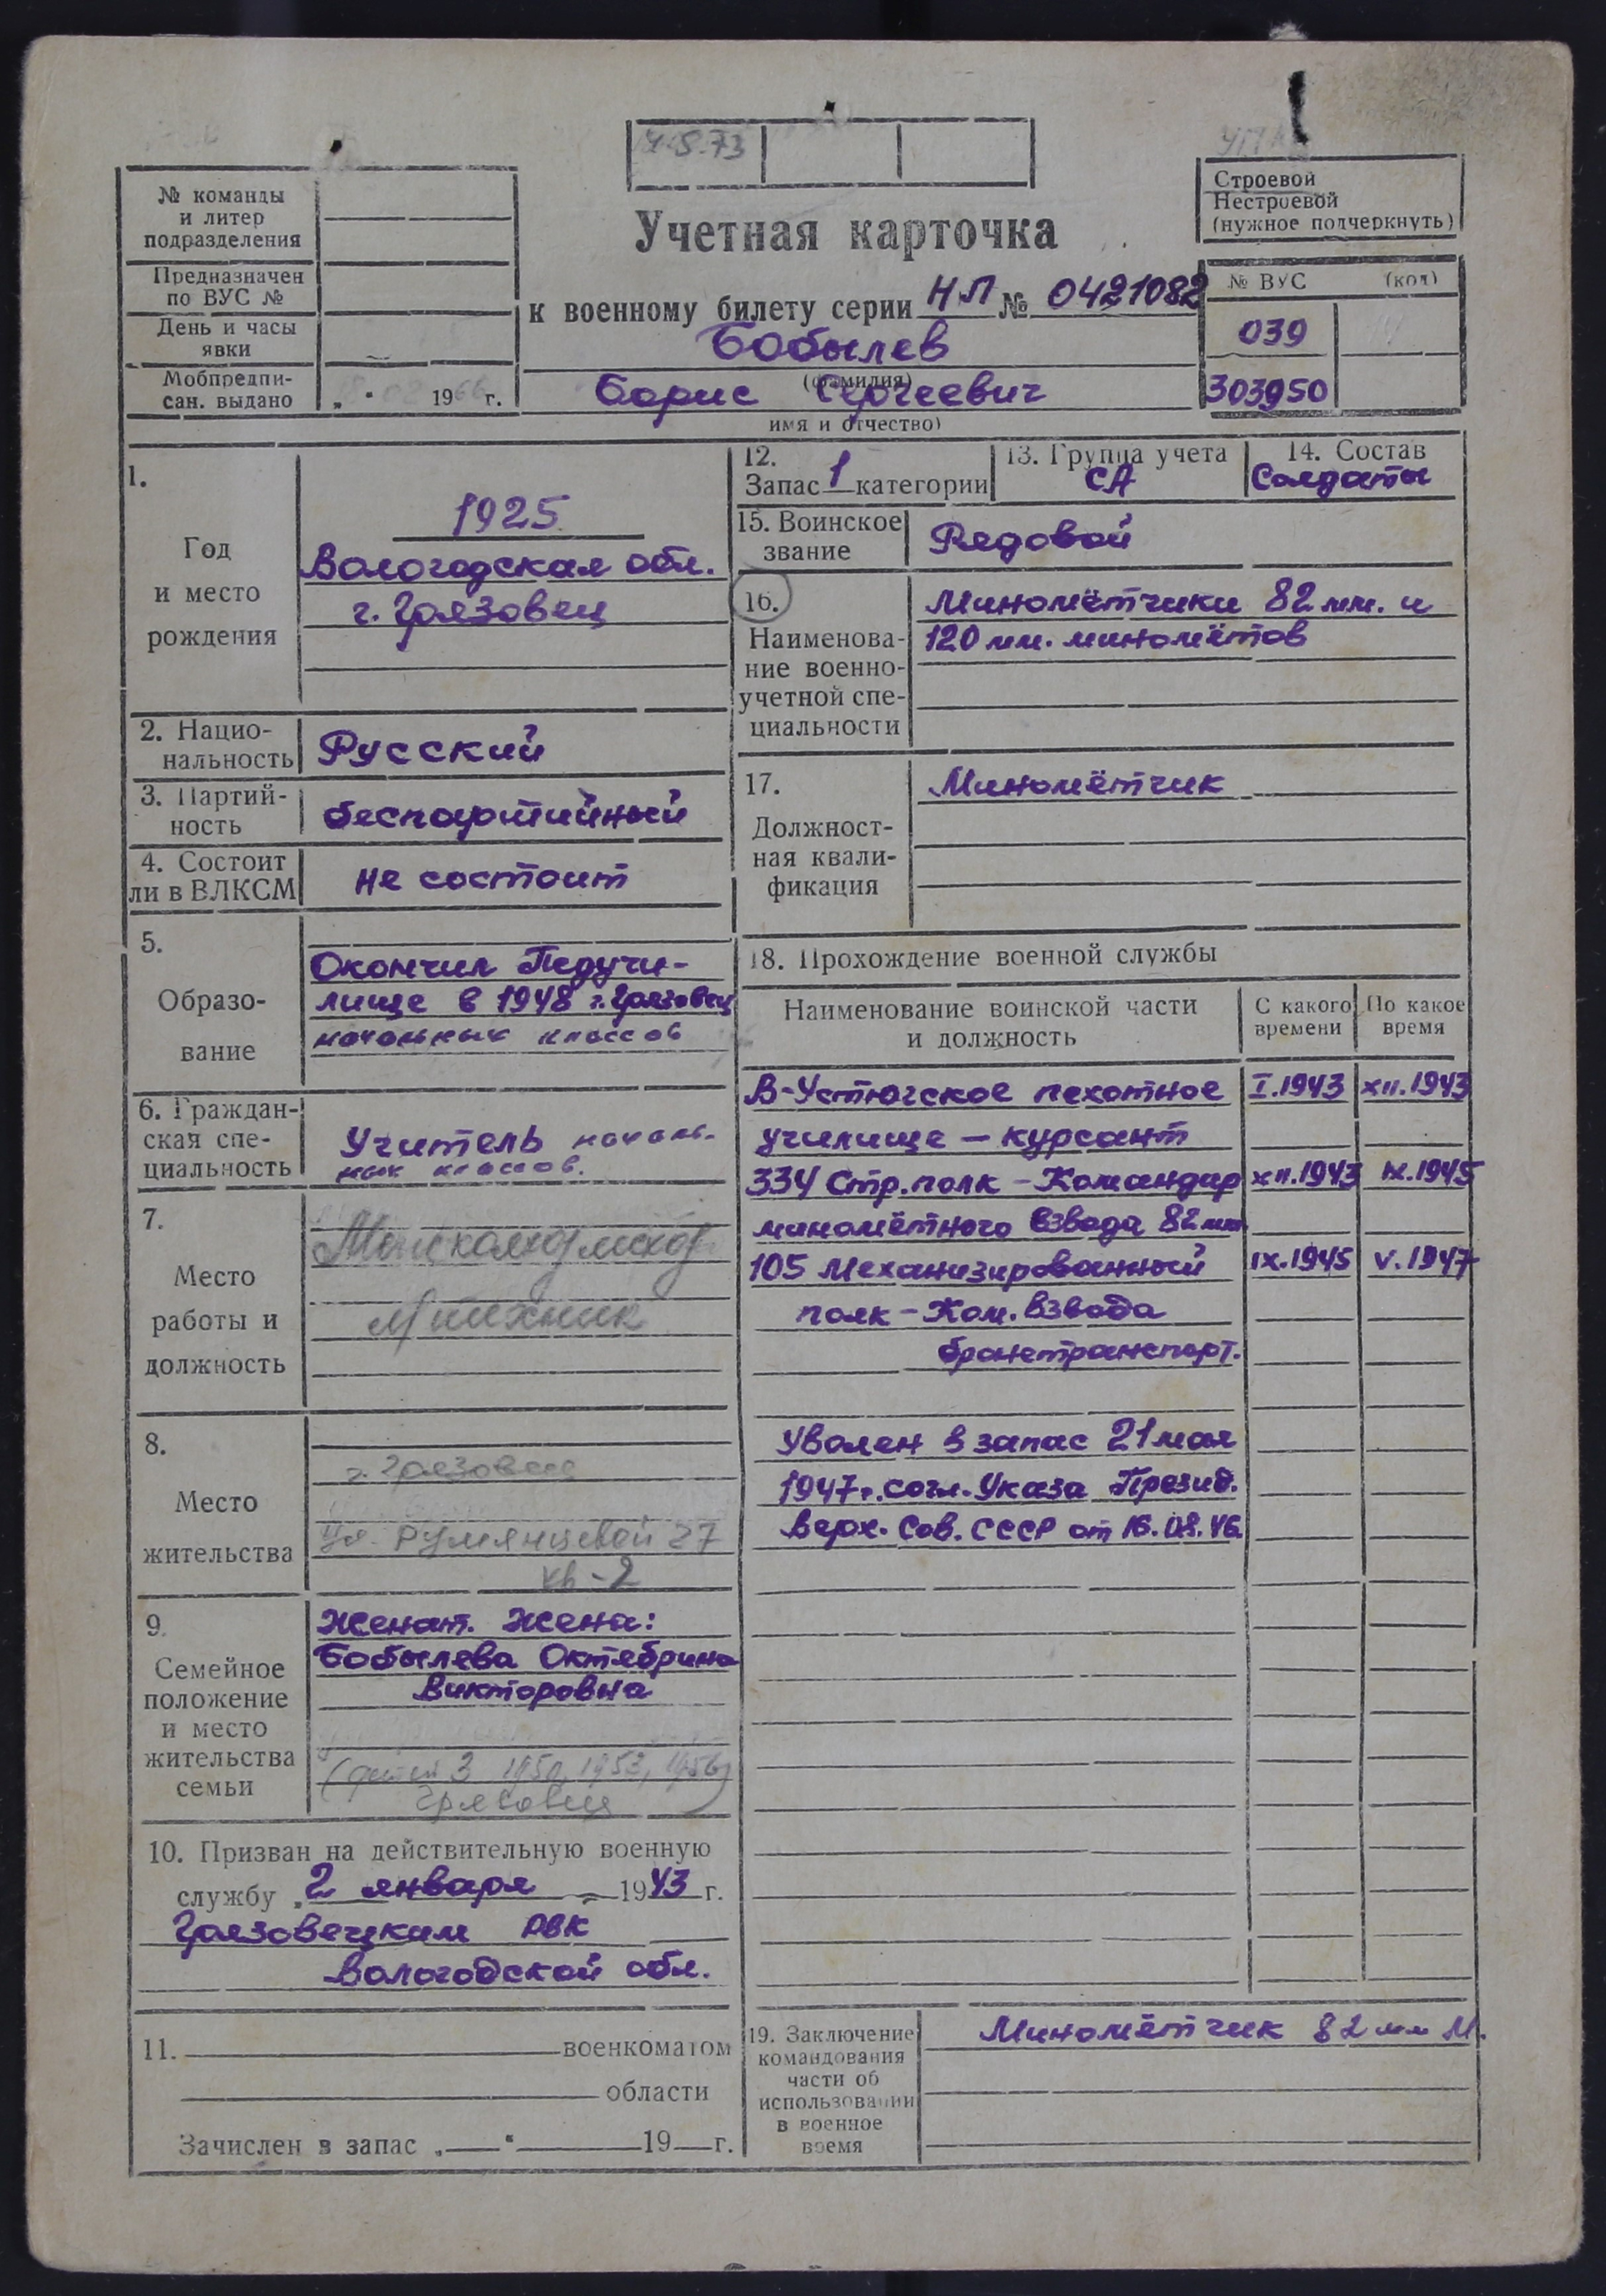 4.5.73
№ команды
и литер
подразделения
Предназначен
по ВУС №
День и часы
явки
Мобпредпи-
сан. выдано „ “ 1966 г.
Учетная карточка
к военному билету серии НЛ № 0421082
Бобылев
(фамилия)
Борис Сергеевич
имя и отчество)
Строевой
Нестроевой
(нужное подчеркнуть)
№ ВУС (код)
039
303950
1.
Год
и место
рождения
1925
Вологодская обл.
г. Грязовец
2. Нацио-
нальность
Русский
3. Партий-
ность
беспартийный
4. Состоит
ли в ВЛКСМ
не состоит
5.
Образо-
вание
Окончил Педучи-
лище в 1948 г. Грязовец
начальных классов
6. Граждан-
ская спе-
циальность
Учитель началь-
ных классов.
7.
Место
работы и
должность
техник
8.
Место
жительства
г. Грязовец
ул. Румянцевой 27
кв-2
9.
Семейное
положение
и место
жительства
семьи
Женат. Жена:
Бобылева Октябрина
Викторовна
(детей 3 1950, 1953, 1956)
Грязовец
10. Призван на действительную военную
службу „2 января “ 1943 г.
Грязовецким РВК
Вологодской обл.
11. военкоматом
области
Зачислен в запас „ “ 19 г.
12.
Запас 1 категории
13. Группа учета
СА
14. Состав
Солдаты
15. Воинское
звание
Рядовой
16.
Наименова-
ние военно-
учетной спе-
циальности
Миномётчики 82 мм. и
120 мм. миномётов
17.
Должност-
ная квали-
фикация
Миномётчик
18. Прохождение военной службы
Наименование воинской части
и должность
С какого
времени
По какое
время
В-Устюгское пехотное I.1943 XII.1943
училище – курсант
334 Стр. полк – Командир XII.1943 IX.1945
миномётного взвода 82 мм
105 Механизированный IX.1945 V.1947
полк – Ком. взвода
бронетранспорт.
Уволен в запас 21 мая
1947 г. согл. Указа Презид.
Верх. Сов. СССР от 16.08.46.
19. Заключение
командования
части об
использовании
в военное
время
Миномётчик 82 мм М.